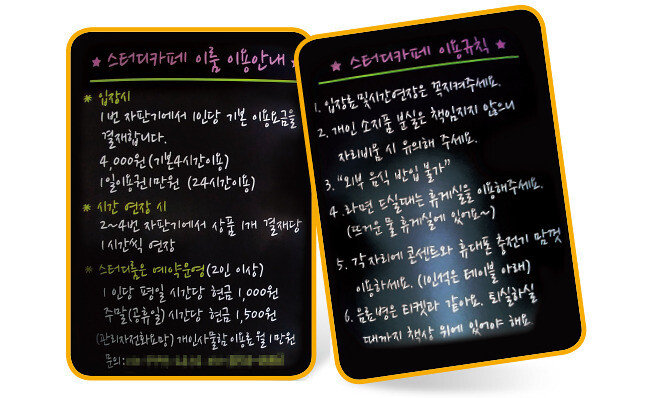 ★ 스터디카페 이룸 이용안내 ★
* 입장시
1번 자판기에서 1인당 기본 이용요금을
결재합니다.
4,000원(기본4시간이용)
1일이용권1만원 (24시간이용)
* 시간 연장 시
2~4번 자판기에서 상품 1개 결재당
1시간씩 연장
* 스터디룸은 예약운영(2인 이상)
1인당 평일 시간당 현금 1,000원
주말(공휴일)시간당 현금 1,500원
(관리자전화요망) 개인사물함 이용료 월 1만원
문의:
★ 스터디카페 이용규칙 ★
1. 입장료 및시간연장은 꼭지켜주세요.
2. 개인 소지품 분실은 책임지지 않으니
자리비움 시 유의해 주세요.
3. "외부 음식 반입 불가"
4. 라면 드실때는 휴게실을 이용해주세요.
(뜨거운 물 휴게실에 있어요~)
5. 각 자리에 콘센트와 휴대폰 충전기 맘껏
이용하세요. (1인석은 테이블 아래)
6. 음료병은 티켓과 같아요. 퇴실하실
때까지 책상 위에 있어야 해요.